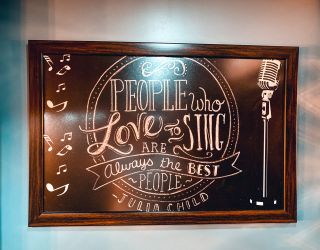 PEOPLE who
LOVE to SING
ARE
Always the BEST
~PEOPLE~
~JULIA CHILD